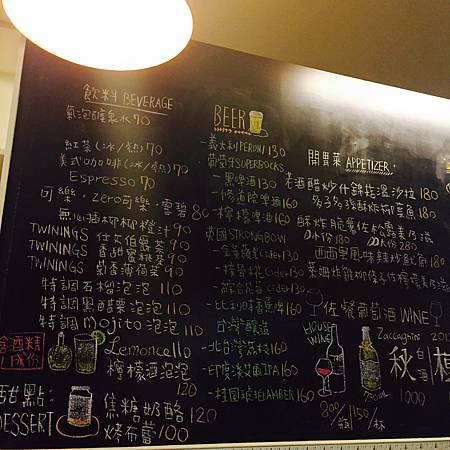 飲料 BEVERAGE
氣泡礦泉水 70
紅茶(冰/熱) 70
美式咖啡(冰/熱) 70
Espresso 70
可樂·Zero可樂·雪碧 80
無心插柳柳橙汁 90
TWININGS 仕女伯爵茶 90
TWININGS 香甜蜜桃茶 90
TWININGS 菊香薄荷茶 90
特調石榴泡泡 110
特調黑醋栗泡泡 110
特調 Mojito 泡泡 110
含酒精
成份
Lemoncello
檸檬酒泡泡
120
甜點:
DESSERT
焦糖奶酪 120
烤布蕾 100
BEER
-義大利PERONI 130
葡萄牙SUPERBOCKS
-黑啤酒 130
-檸檬啤酒 160
英國STRONGBOW
-金蘋蘋Cider 130
-比利時 160
台灣釀造
-北台灣荔枝 160
-印度淡艾IPA! 160
-桂圓琥珀AMBER 160
開胃菜 APPETIZER:
老酒醋炒什錦菇溫沙拉 180
多多多酥炸柳葉魚 180
酥炸脆薯佐松露美乃滋
小份 180
大份 280
西西里風味辣炒魷魚 180
佐餐葡萄酒 WINE
HOUSE
WINE
Zaccagnini 201
秋
750ml
800/瓶 150/杯
1200